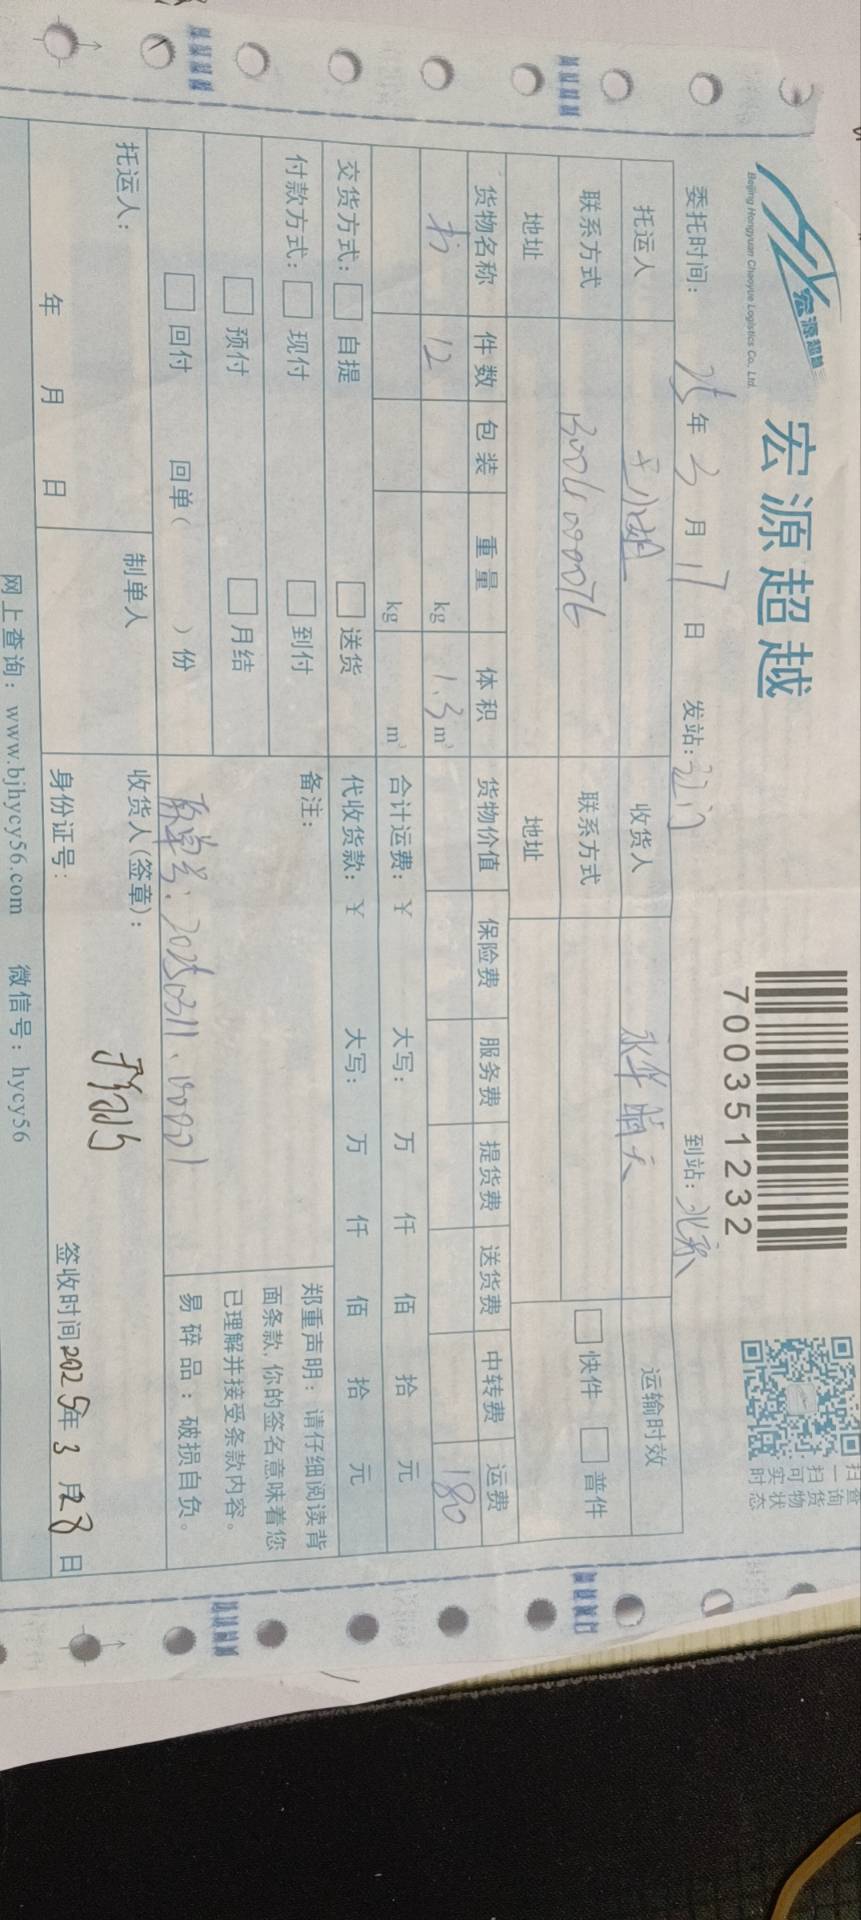 宏源超越
Beijing Hongyuan Chaoyue Logistics Co., Ltd.
宏源超越
7003512 32
扫一扫可实时
查询货物状态
委托时间: 25年3月17日 发站: 江门 到站: 北京
托运人 王小姐 收货人 永华晴天 运输时效
联系方式 联系方式 快件 普件
地址 地址
货物名称 件数 包装 重量 体积 货物价值 保险费 服务费 提货费 送货费 中转费 运费
书 12 kg 1.3 m³ 180
kg m³ 合计运费: ¥ 大写: 万 仟 佰 拾 元
交货方式: 自提 送货 代收货款: ¥ 大写: 万 仟 佰 拾 元
付款方式: 现付 到付 备注:
预付 月结
回付 回单( )份
原单号: 20250311、
郑重声明: 请仔细阅读背
面条款, 你的签名意味着您
已理解并接受条款内容。
易碎品: 破损自负。
托运人: 制单人 收货人(签章):
年 月 日 身份证号: 签收时间2025年3月28日
网上查询: www.bjhycy56.com 微信号: hycy56